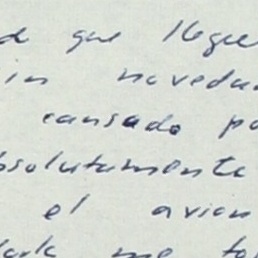 d que llegue
in noveda
cansado po
bsolutamente
el avion
ark me to